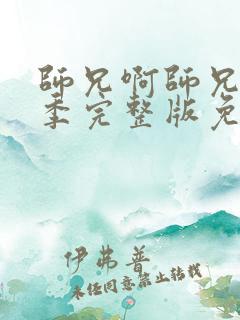 師兄啊師兄
季完整版免
伊弗普
未经同意禁止转载